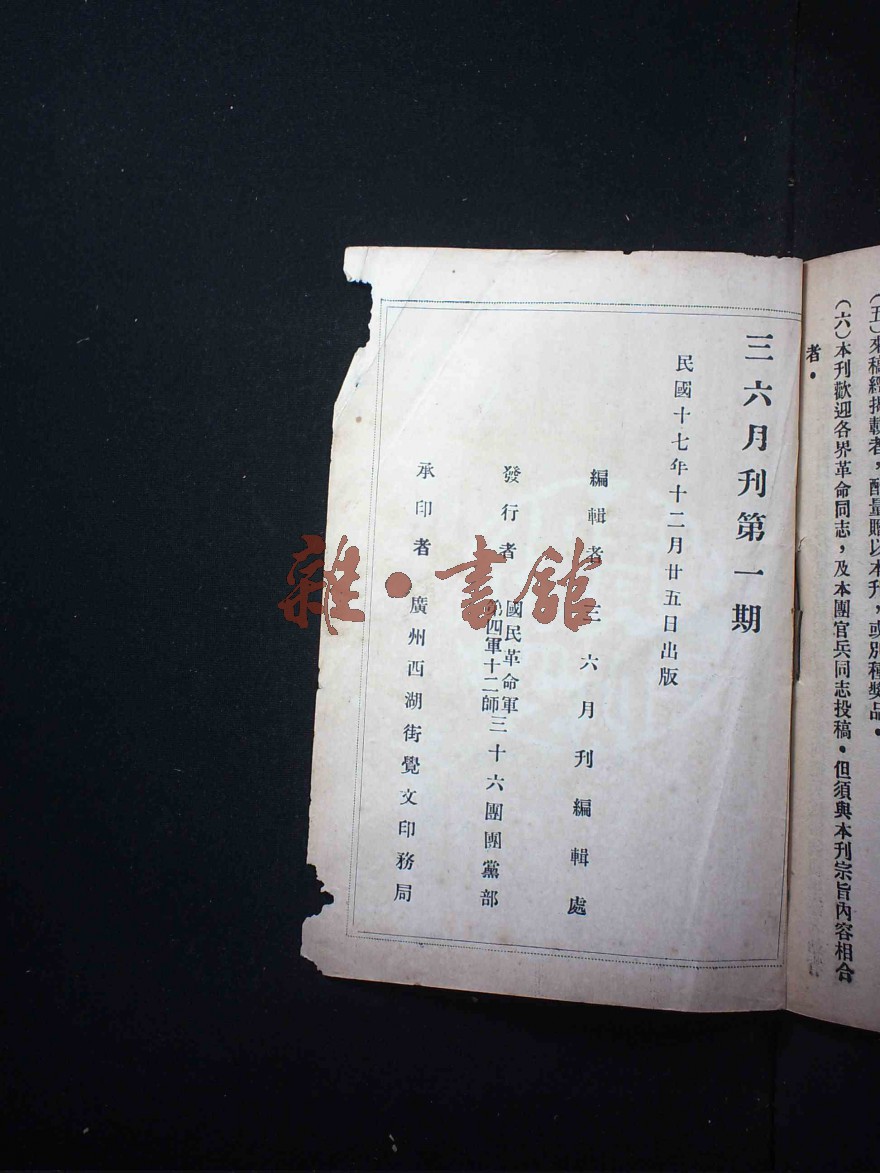 (五)來稿經揭載者,酌量贈以本刋,或別種獎品.
(六)本刋歡迎各界革命同志,及本團官兵同志投稿.但須與本刋宗旨內容相合
者.
三六月刋第一期
民國十七年十二月廿五日出版
編輯者 三六月刋編輯處
發行者 國民革命軍第四軍十二師三十六團團黨部
承印者 廣州西湖街覺文印務局
雜·書館